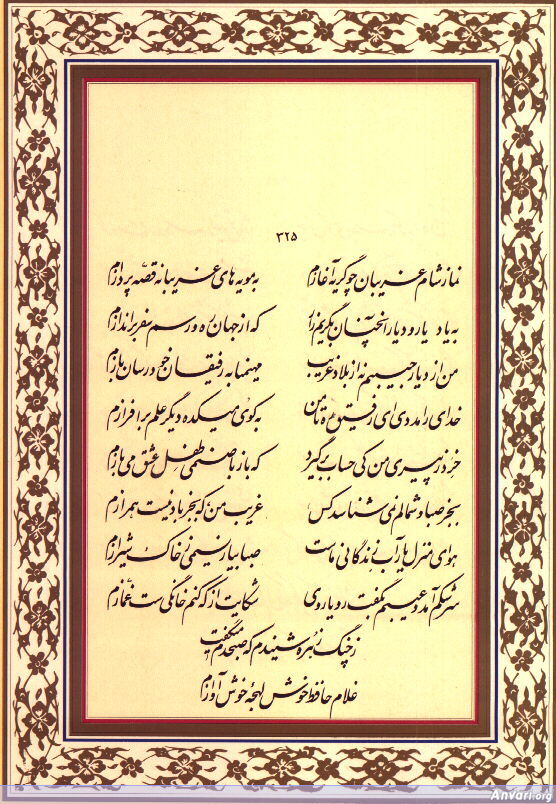 ۳۲۵
نماز شام غریبان چو گریه آغازم به مویه های غریبانه قصه پردازم
به یاد یار و دیار آنچنان بگریم زار که از جهان ره و رسم سفر براندازم
من از دیار حبیبم نه از بلاد غریب مهیمنا به رفیقان خود رسان بازم
خدای را مددی ای رفیق ره تا من به کوی میکده دیگر علم برافرازم
خرد ز پیری من کی حساب برگیرد که باز با صنمی طفل عشق می بازم
بجز صبا و شمالم نمی شناسد کس غریب من که بجز باد نیست همرازم
هوای منزل یار آب زندگانی ماست صبا بیار نسیمی ز خاک شیرازم
سرشکم آمد و عیبم بگفت رو یا روی شکایت از که کنم خانگی ست غمازم
ز چنگ زهره شنیدم که صبحدم میگفت
غلام حافظ خوش لهجهٔ خوش آوازم
Anvari.org